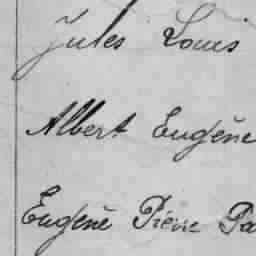 Jules Louis
Albert Eugène
Eugène Pierre